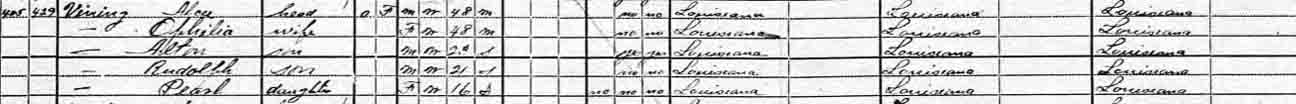 405 429 Vining Alex head O F M W 48 M no no Louisiana Louisiana Louisiana
— Ophilia wife F W 48 M no no Louisiana Louisiana Louisiana
— Alton son M W 23 S yes yes Louisiana Louisiana Louisiana
— Rudolph son M W 21 S no no Louisiana Louisiana Louisiana
— Pearl daughter F W 16 S no no no Louisiana Louisiana Louisiana